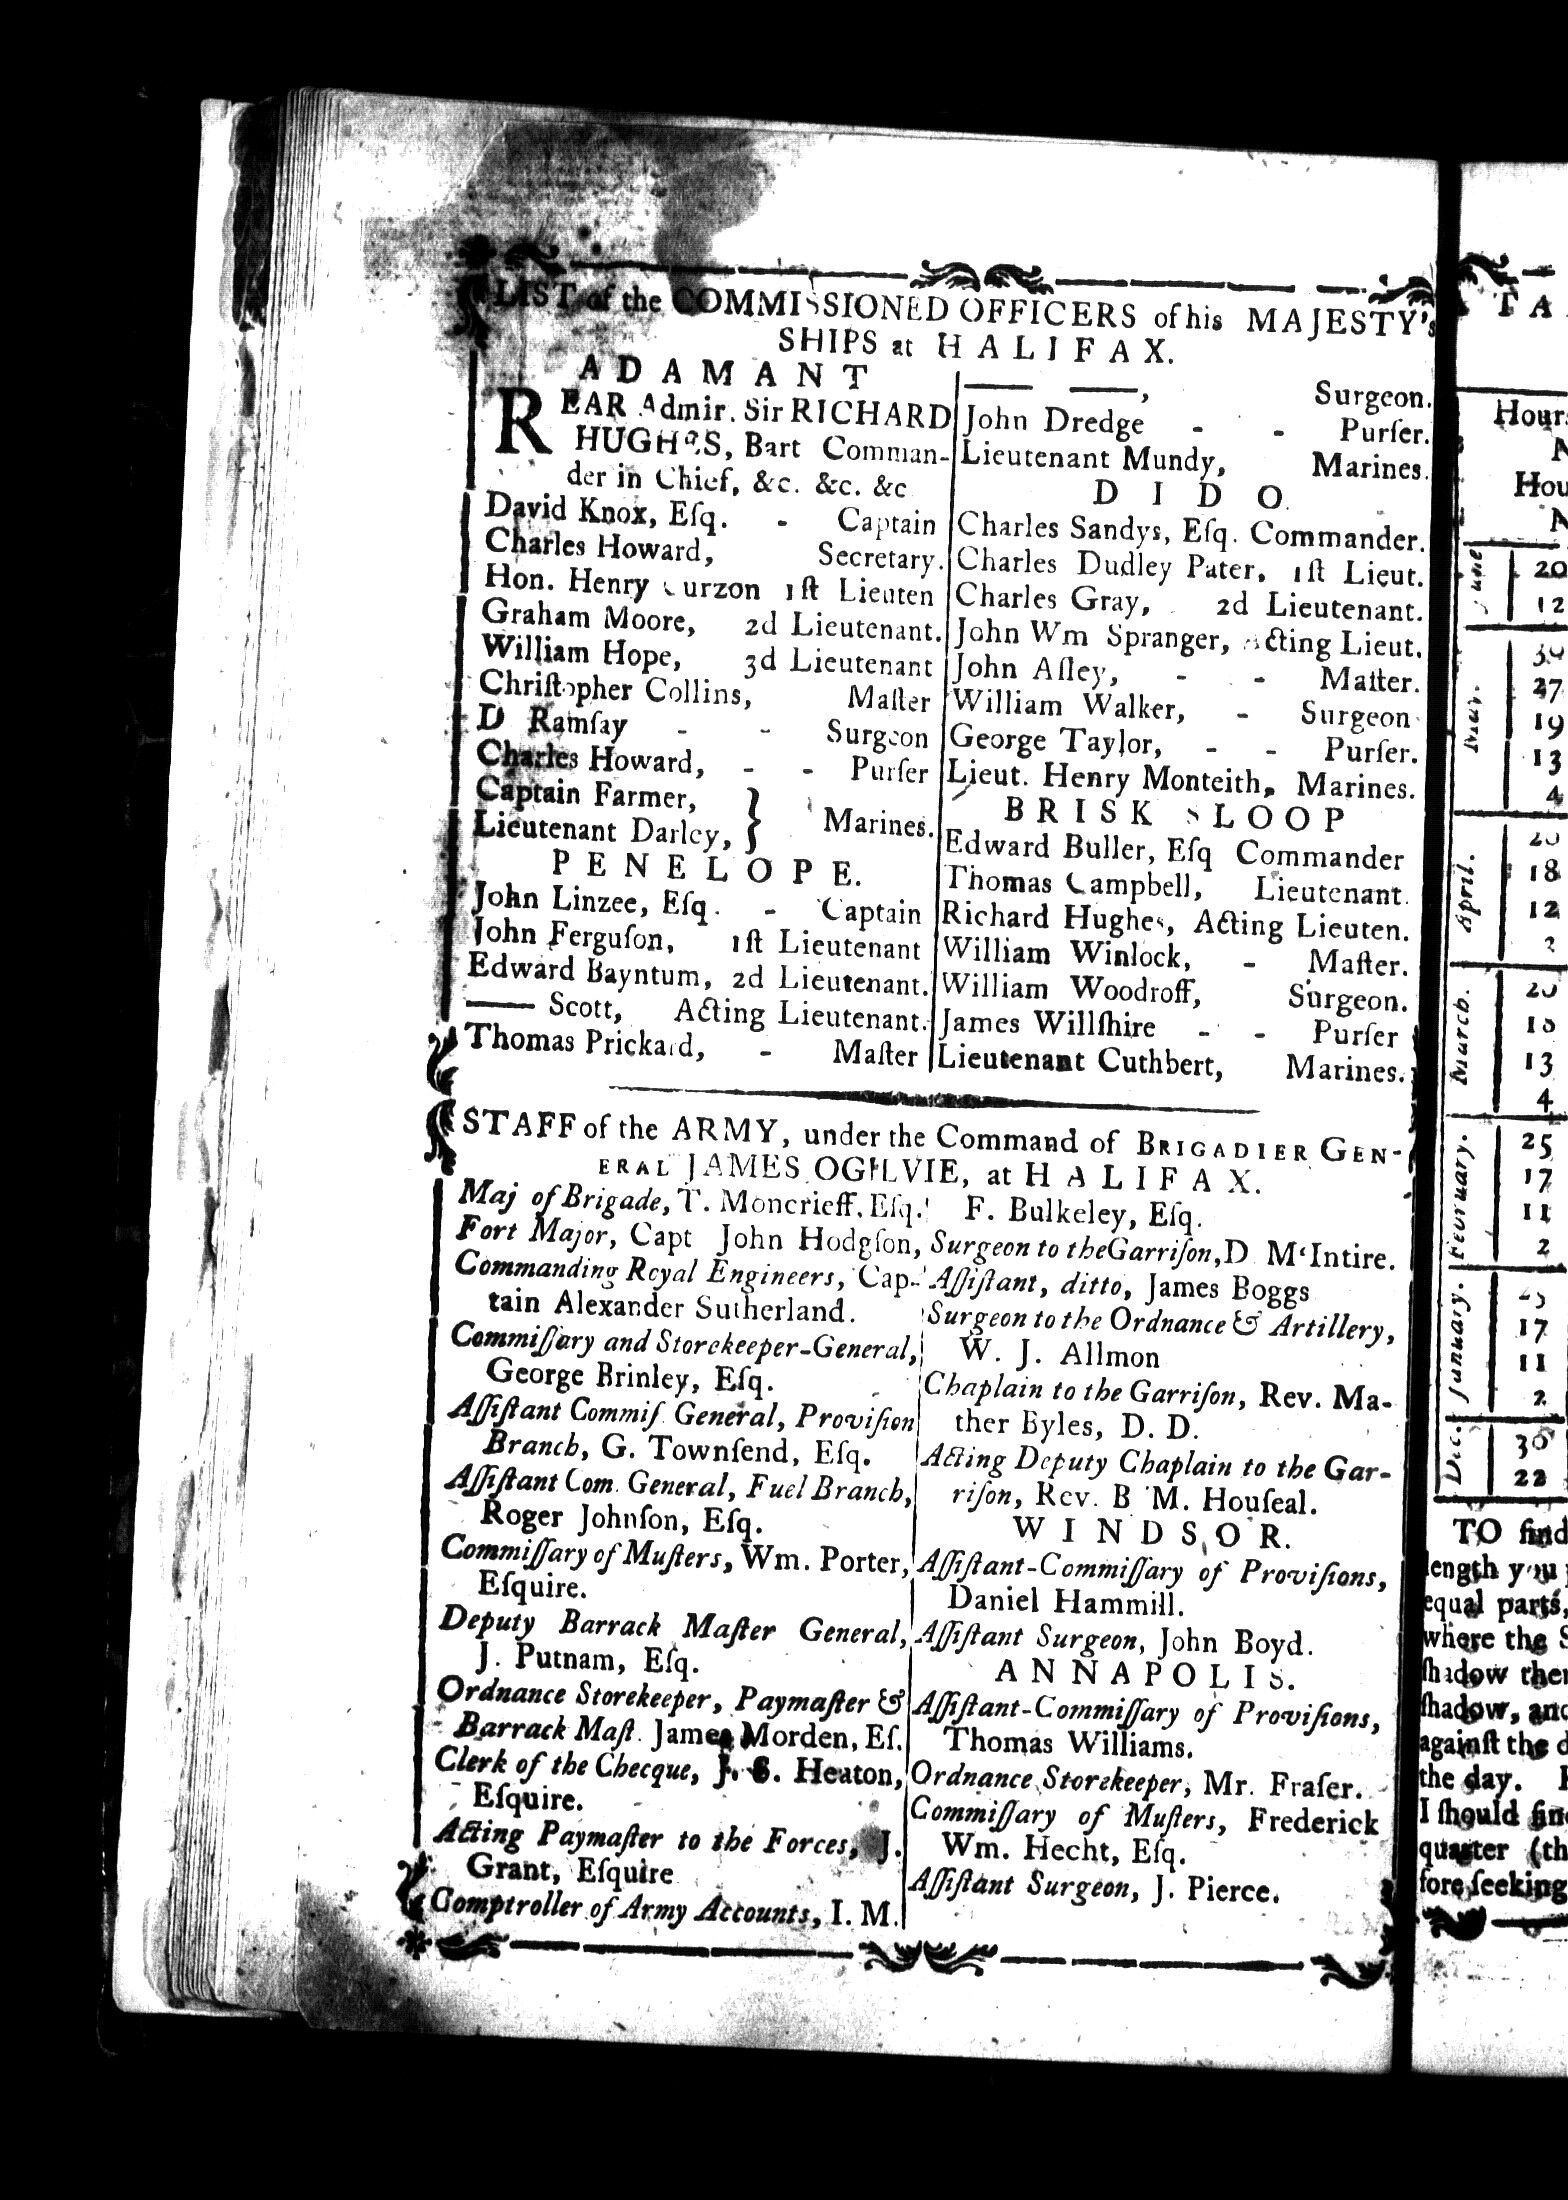 LIST of the COMMISSIONED OFFICERS of his MAJESTY's
SHIPS at HALIFAX.
ADAMANT
REAR Admir. Sir RICHARD
HUGHES, Bart Comman-
der in Chief, &c. &c. &c
David Knox, Eſq. - Captain
Charles Howard, Secretary.
Hon. Henry Curzon 1ſt Lieuten
Graham Moore, 2d Lieutenant.
William Hope, 3d Lieutenant
Chriſtopher Collins, Maſter
D Ramſay - - Surgeon
Charles Howard, - - Purſer
Captain Farmer,
Lieutenant Darley, } Marines.
PENELOPE.
John Linzee, Eſq. - Captain
John Ferguſon, 1ſt Lieutenant
Edward Bayntum, 2d Lieutenant.
—— Scott, Acting Lieutenant.
Thomas Prickard, - Maſter
—— ——, Surgeon.
John Dredge - - Purſer.
Lieutenant Mundy, Marines.
DIDO
Charles Sandys, Eſq. Commander.
Charles Dudley Pater, 1ſt Lieut.
Charles Gray, 2d Lieutenant.
John Wm Spranger, Acting Lieut.
John Aſley, - - Maſter.
William Walker, - Surgeon
George Taylor, - - Purſer.
Lieut. Henry Monteith, Marines.
BRISK SLOOP
Edward Buller, Eſq Commander
Thomas Campbell, Lieutenant.
Richard Hughes, Acting Lieuten.
William Winlock, - Maſter.
William Woodroff, Surgeon.
James Willſhire - - Purſer
Lieutenant Cuthbert, Marines.
STAFF of the ARMY, under the Command of BRIGADIER GEN-
ERAL JAMES OGILVIE, at HALIFAX.
Maj of Brigade, T. Moncrieff, Eſq.
Fort Major, Capt John Hodgſon,
Commanding Royal Engineers, Cap-
tain Alexander Sutherland.
Commiſſary and Storekeeper-General,
George Brinley, Eſq.
Aſſiſtant Commiſ. General, Proviſion
Branch, G. Townſend, Eſq.
Aſſiſtant Com. General, Fuel Branch,
Roger Johnſon, Eſq.
Commiſſary of Muſters, Wm. Porter,
Eſquire.
Deputy Barrack Maſter General,
J. Putnam, Eſq.
Ordnance Storekeeper, Paymaſter &
Barrack Maſt. James Morden, Eſ.
Clerk of the Checque, J. Heaton,
Eſquire.
Acting Paymaſter to the Forces, J.
Grant, Eſquire
Comptroller of Army Accounts, I. M.
F. Bulkeley, Eſq.
Surgeon to the Garriſon, D M'Intire.
Aſſiſtant, ditto, James Boggs
Surgeon to the Ordnance & Artillery,
W. J. Allmon
Chaplain to the Garriſon, Rev. Ma-
ther Byles, D. D.
Acting Deputy Chaplain to the Gar-
riſon, Rev. B M. Houſeal.
WINDSOR.
Aſſiſtant-Commiſſary of Proviſions,
Daniel Hammill.
Aſſiſtant Surgeon, John Boyd.
ANNAPOLIS.
Aſſiſtant-Commiſſary of Proviſions,
Thomas Williams.
Ordnance Storekeeper, Mr. Fraſer.
Commiſſary of Muſters, Frederick
Wm. Hecht, Eſq.
Aſſiſtant Surgeon, J. Pierce.
TA
Hour
N
Hou
N
June
20
12
May.
30
27
19
13
4
April.
20
18
12
March.
20
13
4
February.
25
17
11
2
January.
17
11
2
Dec.
30
22
TO find
length you
equal parts,
where the S
ſhadow the
ſhadow, and
againſt the d
the day.
I ſhould fin
quarter (th
fore ſeeking